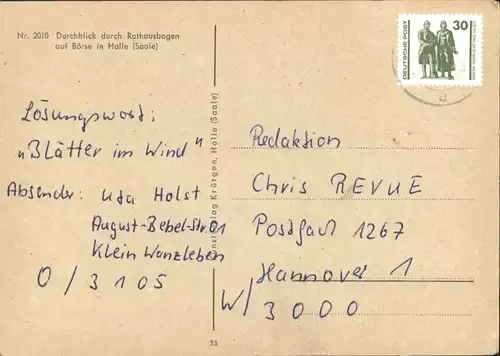 Nr. 2010 Durchblick durch Rathausbogen
auf Börse in Halle (Saale)
30
DEUTSCHE POST
Lösungswort:
„Blätter im Wind"
Absender: Uta Holst
August-Bebel-Str. 61
Klein Wanzleben
O / 3105
Krötgen, Halle (Saale)
Redaktion
Chris REVUE
Postfach 1267
Hannover 1
W/ 3000
33